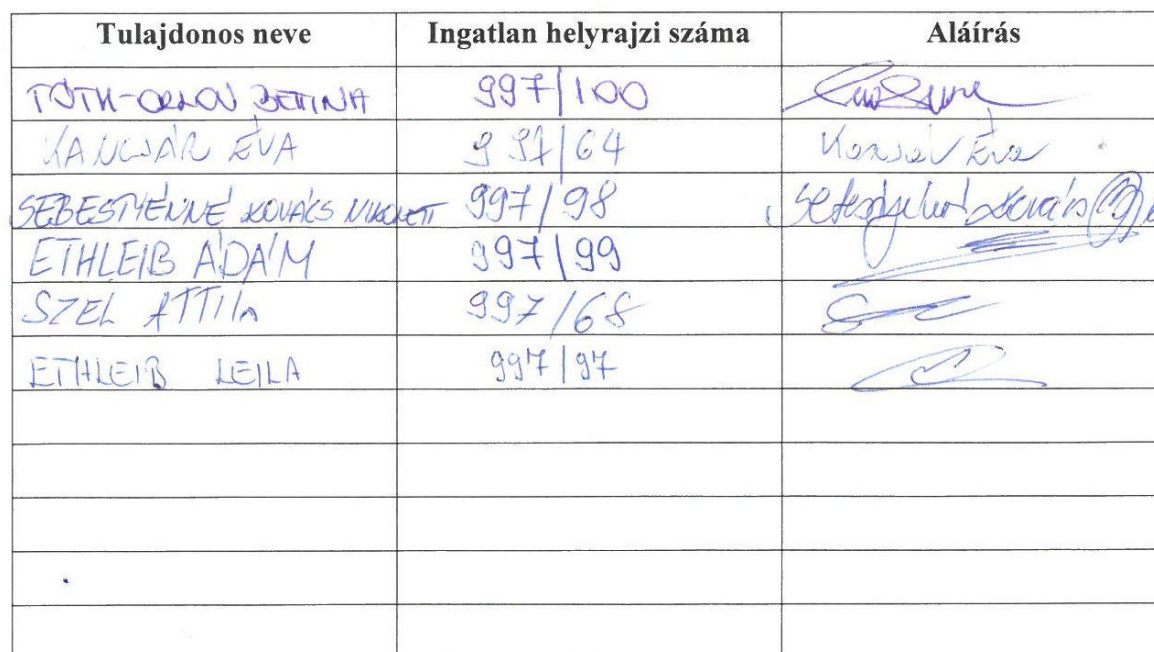 Tulajdonos neve Ingatlan helyrajzi száma Aláírás
TÓTH-ORLOV BETTINA 997/100
KANCSÁR ÉVA 997/64 Kancsár Éva
SEBESTYÉNNÉ KOVÁCS NIKOLETT 997/98
ETHLEIB ÁDÁM 997/99
SZEL ATTILA 997/68
ETHLEIB LEILA 997/97